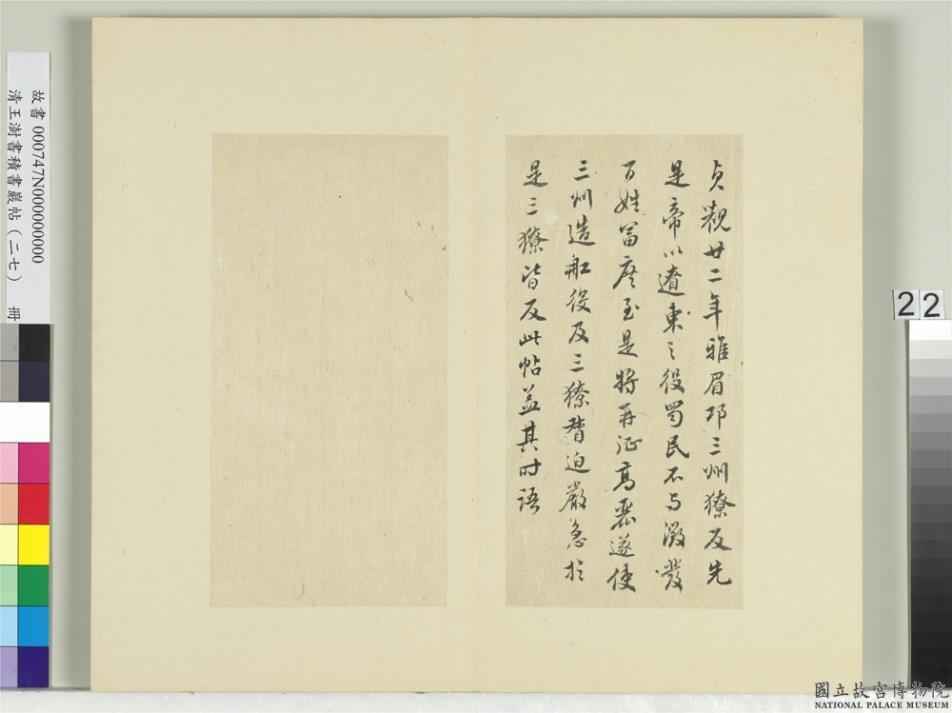 貞觀廿二年雅眉邛三州獠反先
是帝以遼東之役蜀民不與徵發
百姓富庶至是將再征高麗遂使
三州造舡役及三獠督迫嚴急於
是三獠皆反此帖盖其时語
故書 000747N000000000
清王澍書積書巖帖（二七） 冊
22
國立故宮博物院
NATIONAL PALACE MUSEUM